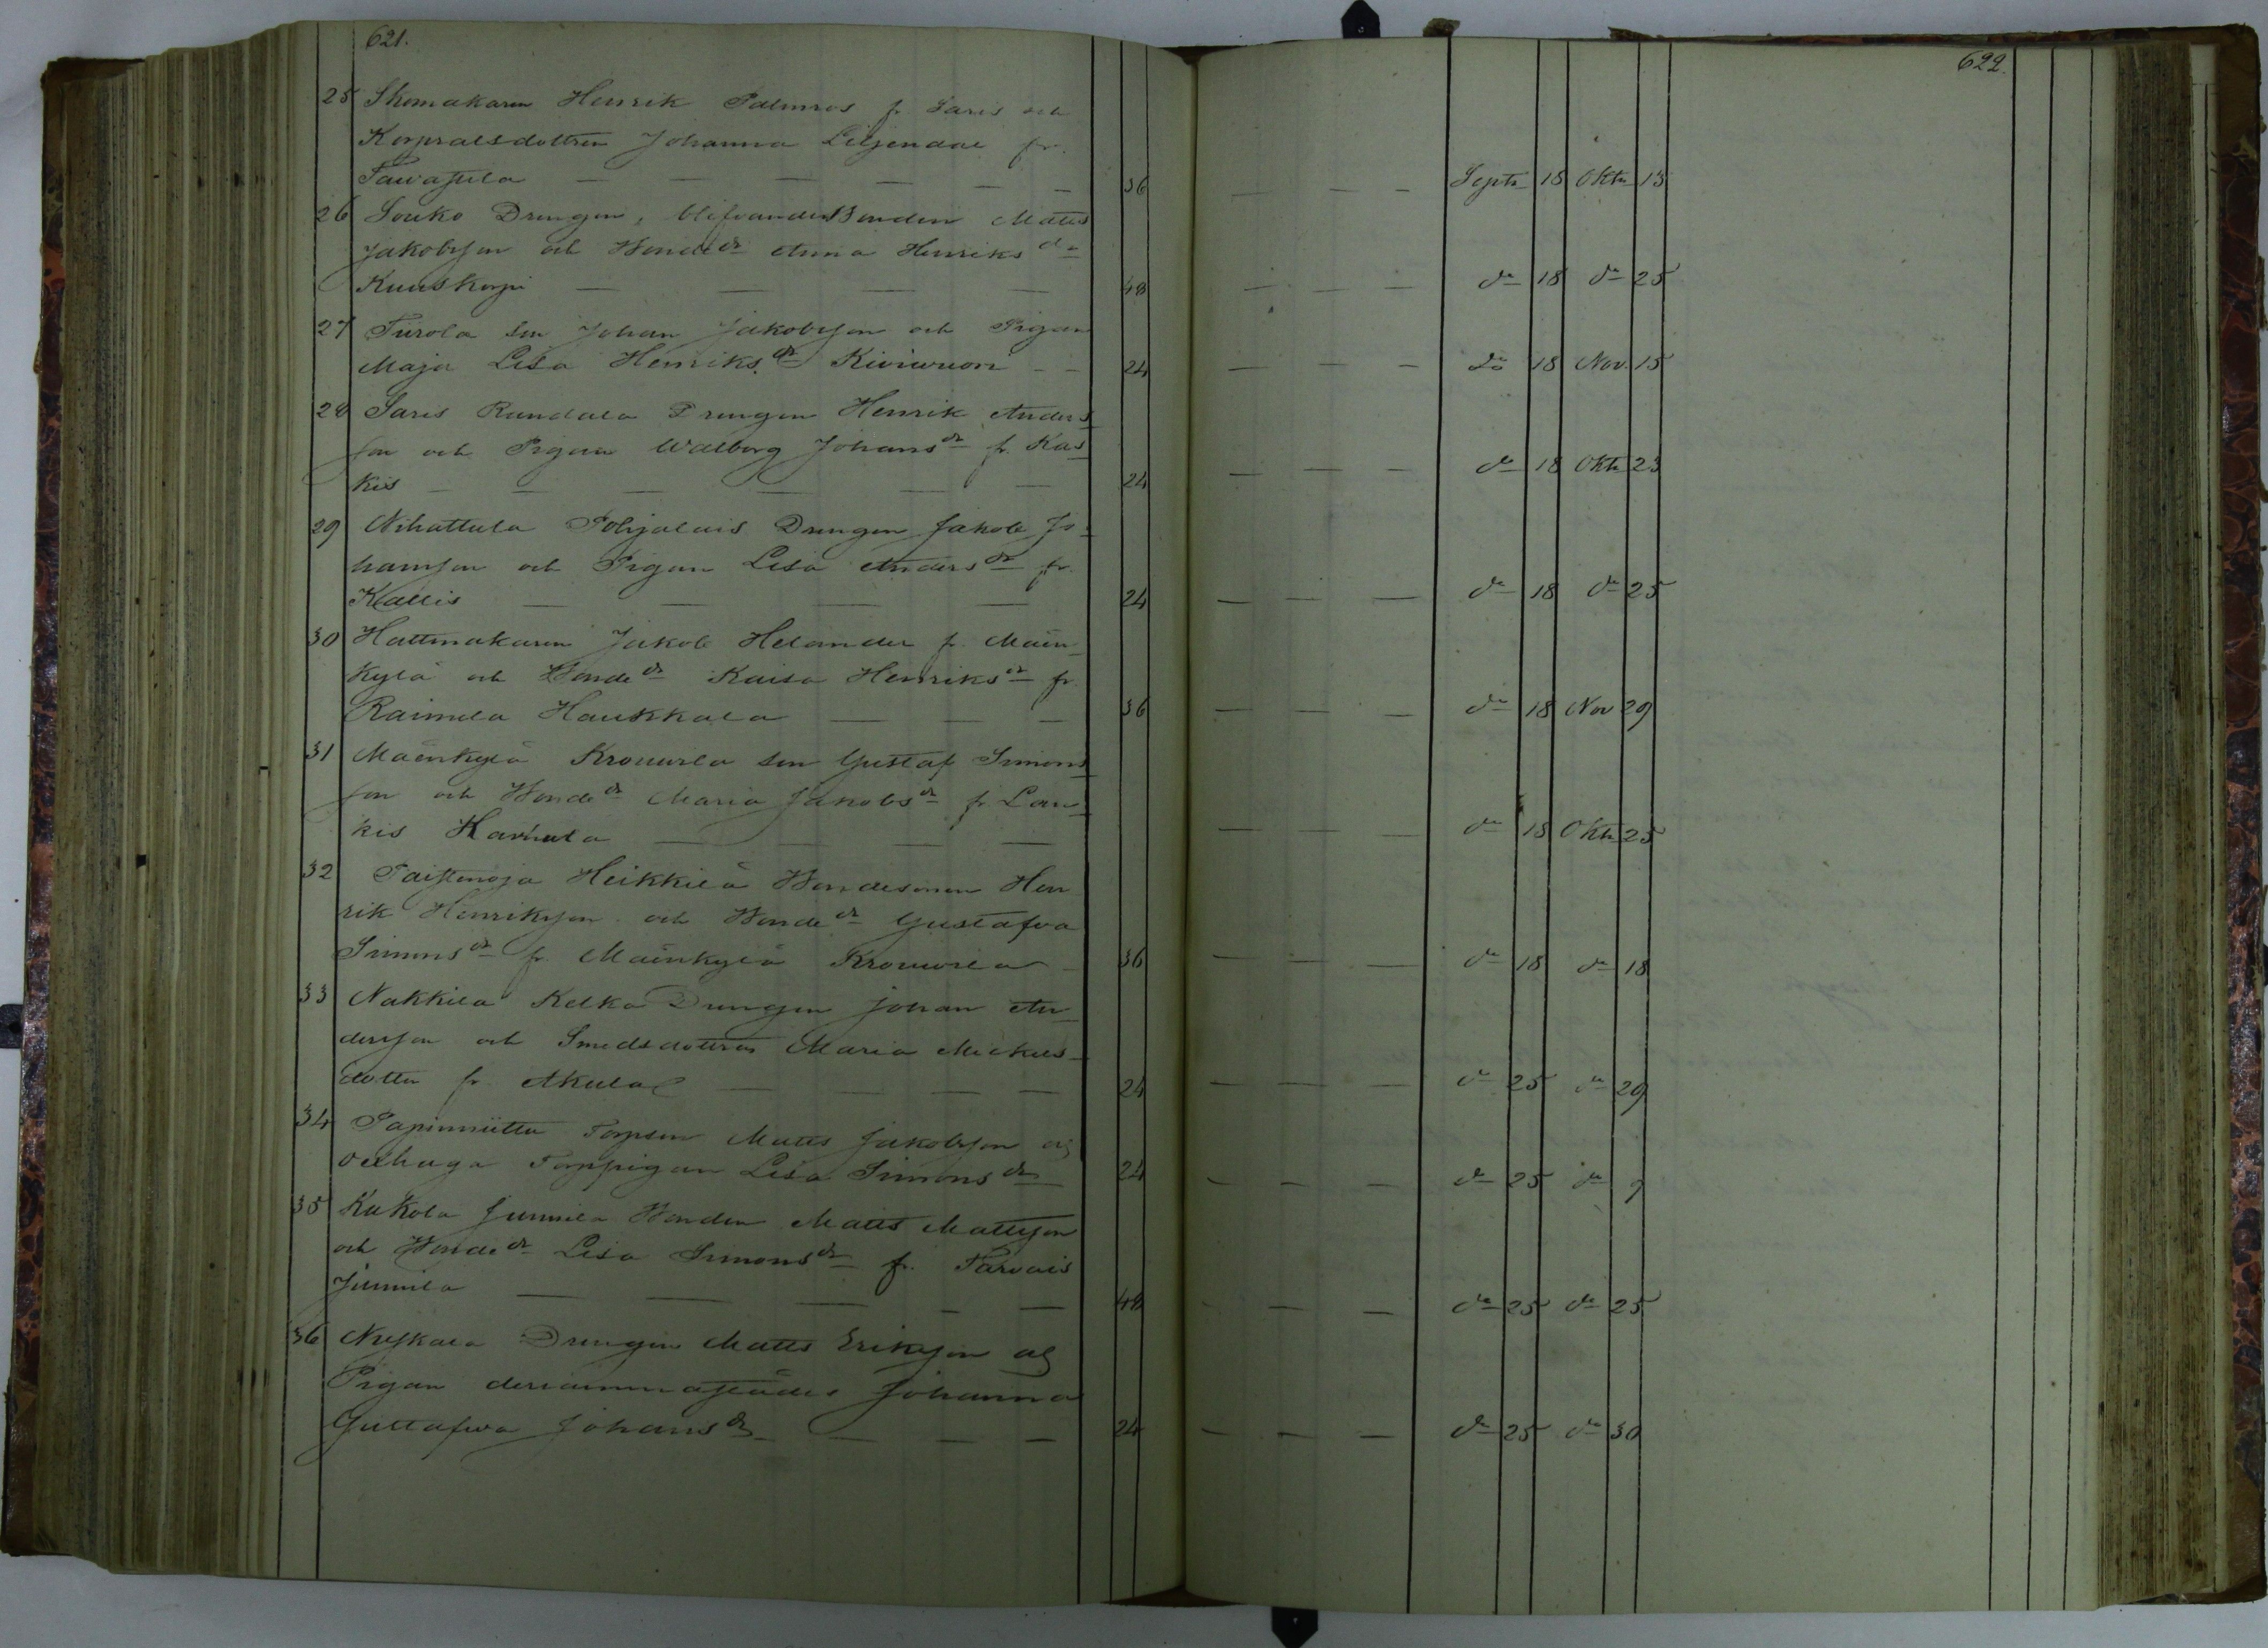 621.
622.
25 Skomakaren Henrik Palmros fr. Saris och
Korpralsdottren Johanna Liljendal fr.
Tawastila — — — — — — 36 — — — Septr 18 Oktr 13
26 Souko Drengen, blifvande Bonden Matts
Jakobsson och Bondedr Anna Henriksdr
Kuuskorpi — — — — 48 — — — do 18 do 25
27 Tiirola son Johan Jakobsson och Pigan
Maja Lisa Henriksdr Kiviwuori - - 24 — — — do 18 Nov. 15
28 Saris Rundala Drengen Henrik Anders
son och Pigan Walborg Johansdr fr. Kas
kis — — — — — — 24 — — — do 18 Oktr 23
29 Nihattula Pohjalais Drengen Jakob Jo
hansson och Pigan Lisa Andersdr fr.
Kallis — — — — 24 — — — do 18 do 25
30 Hattmakaren Jakob Helander fr. Mäen
kylä och Bondedr Kaisa Henriksdr fr.
Raimela Haukkala — — — 36 — — — do 18 Nov 29
31 Mäenkylä Krouwila son Gustaf Simons
son och Bondedr Maria Jakobsdr fr. Lau
kis Karhula — — — — — — — do 18 Oktr 25
32 Paistenoja Heikkilä Bondesonen Hen
rik Henriksson och Bondedr Gustafva
Simonsdr fr. Mäenkylä Krouwila — 36 — — — do 18 do 18
33 Nakkila Kelka Drengen Johan An
dersson och Smedsdottren Maria Mickels
dotter fr. Akula — — — — 24 — — — do 25 do 29
34 Papinniittu Torpson Matts Jakobsson och
Torppigan Lisa Simonsdr 24 — — — do 25 do 9
35 Kukola Junnila Bonden Matts Mattsson
och Bondedr Lisa Simonsdr fr. Tarvais
Junnila — — — — — 48 — — — do 25 do 25
36 Drengen Matts Eriksson och
Pigan dersammastädes Johanna
Gustafwa Johansdr — — — 24 — — — do 25 do 30